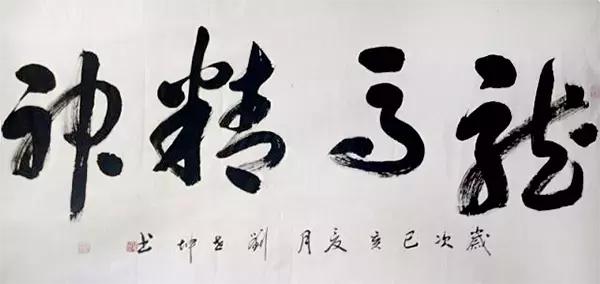 龍馬精神
歲次己亥夏月劉 坤书